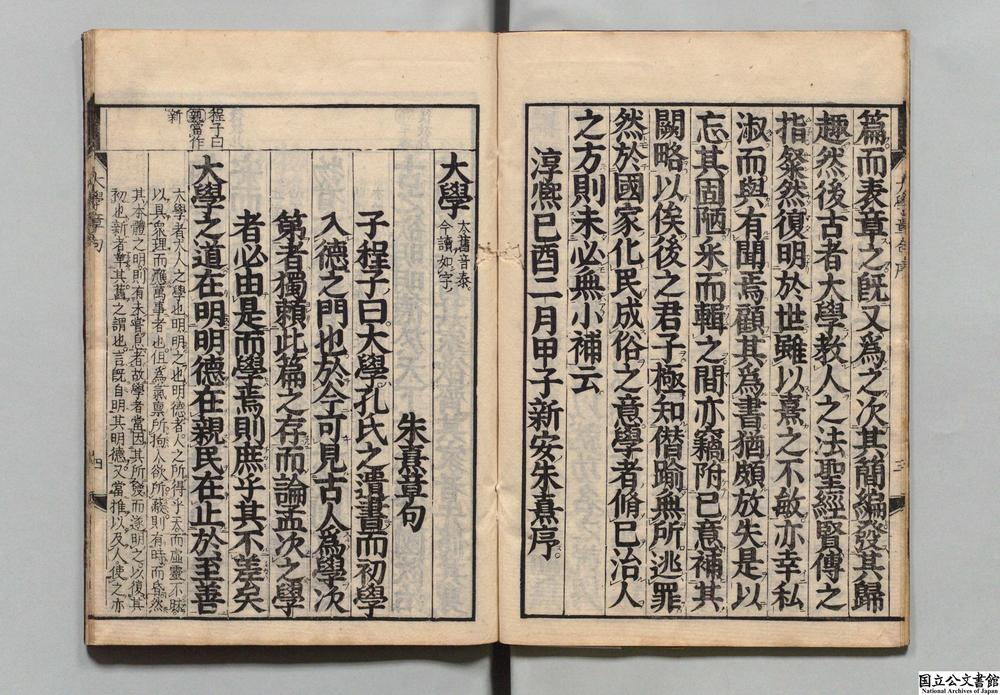 篇而表章之旣又爲之次其簡編發其歸
趣然後古者大學教人之法聖經賢傳之
指粲然復明於世雖以熹之不敏亦幸私
淑而與有聞焉顧其爲書猶頗放失是以
忘其固陋采而輯之間亦竊附己意補其
闕略以俟後之君子極知僭踰無所逃罪
然於國家化民成俗之意學者脩己治人
之方則未必無小補云
淳熈己酉二月甲子新安朱熹序
大學
大舊音泰
今讀如字
朱熹章句
子程子曰大學孔氏之遺書而初學
入德之門也於今可見古人爲學次
第者獨賴此篇之存而論孟次之學
者必由是而學焉則庶乎其不差矣
大學之道在明明德在親民在止於至善
程子曰
親當作
新
大學者大人之學也明明之也明德者人之所得乎天而虛靈不昧
以具衆理而應萬事者也但爲氣稟所拘人欲所蔽則有時而昏然
其本體之明則有未嘗息者故學者當因其所發而遂明之以復其
初也新者革其舊之謂也言旣自明其明德又當推以及人使之亦
大學章句
四
三
国立公文書館
National Archives of Japan